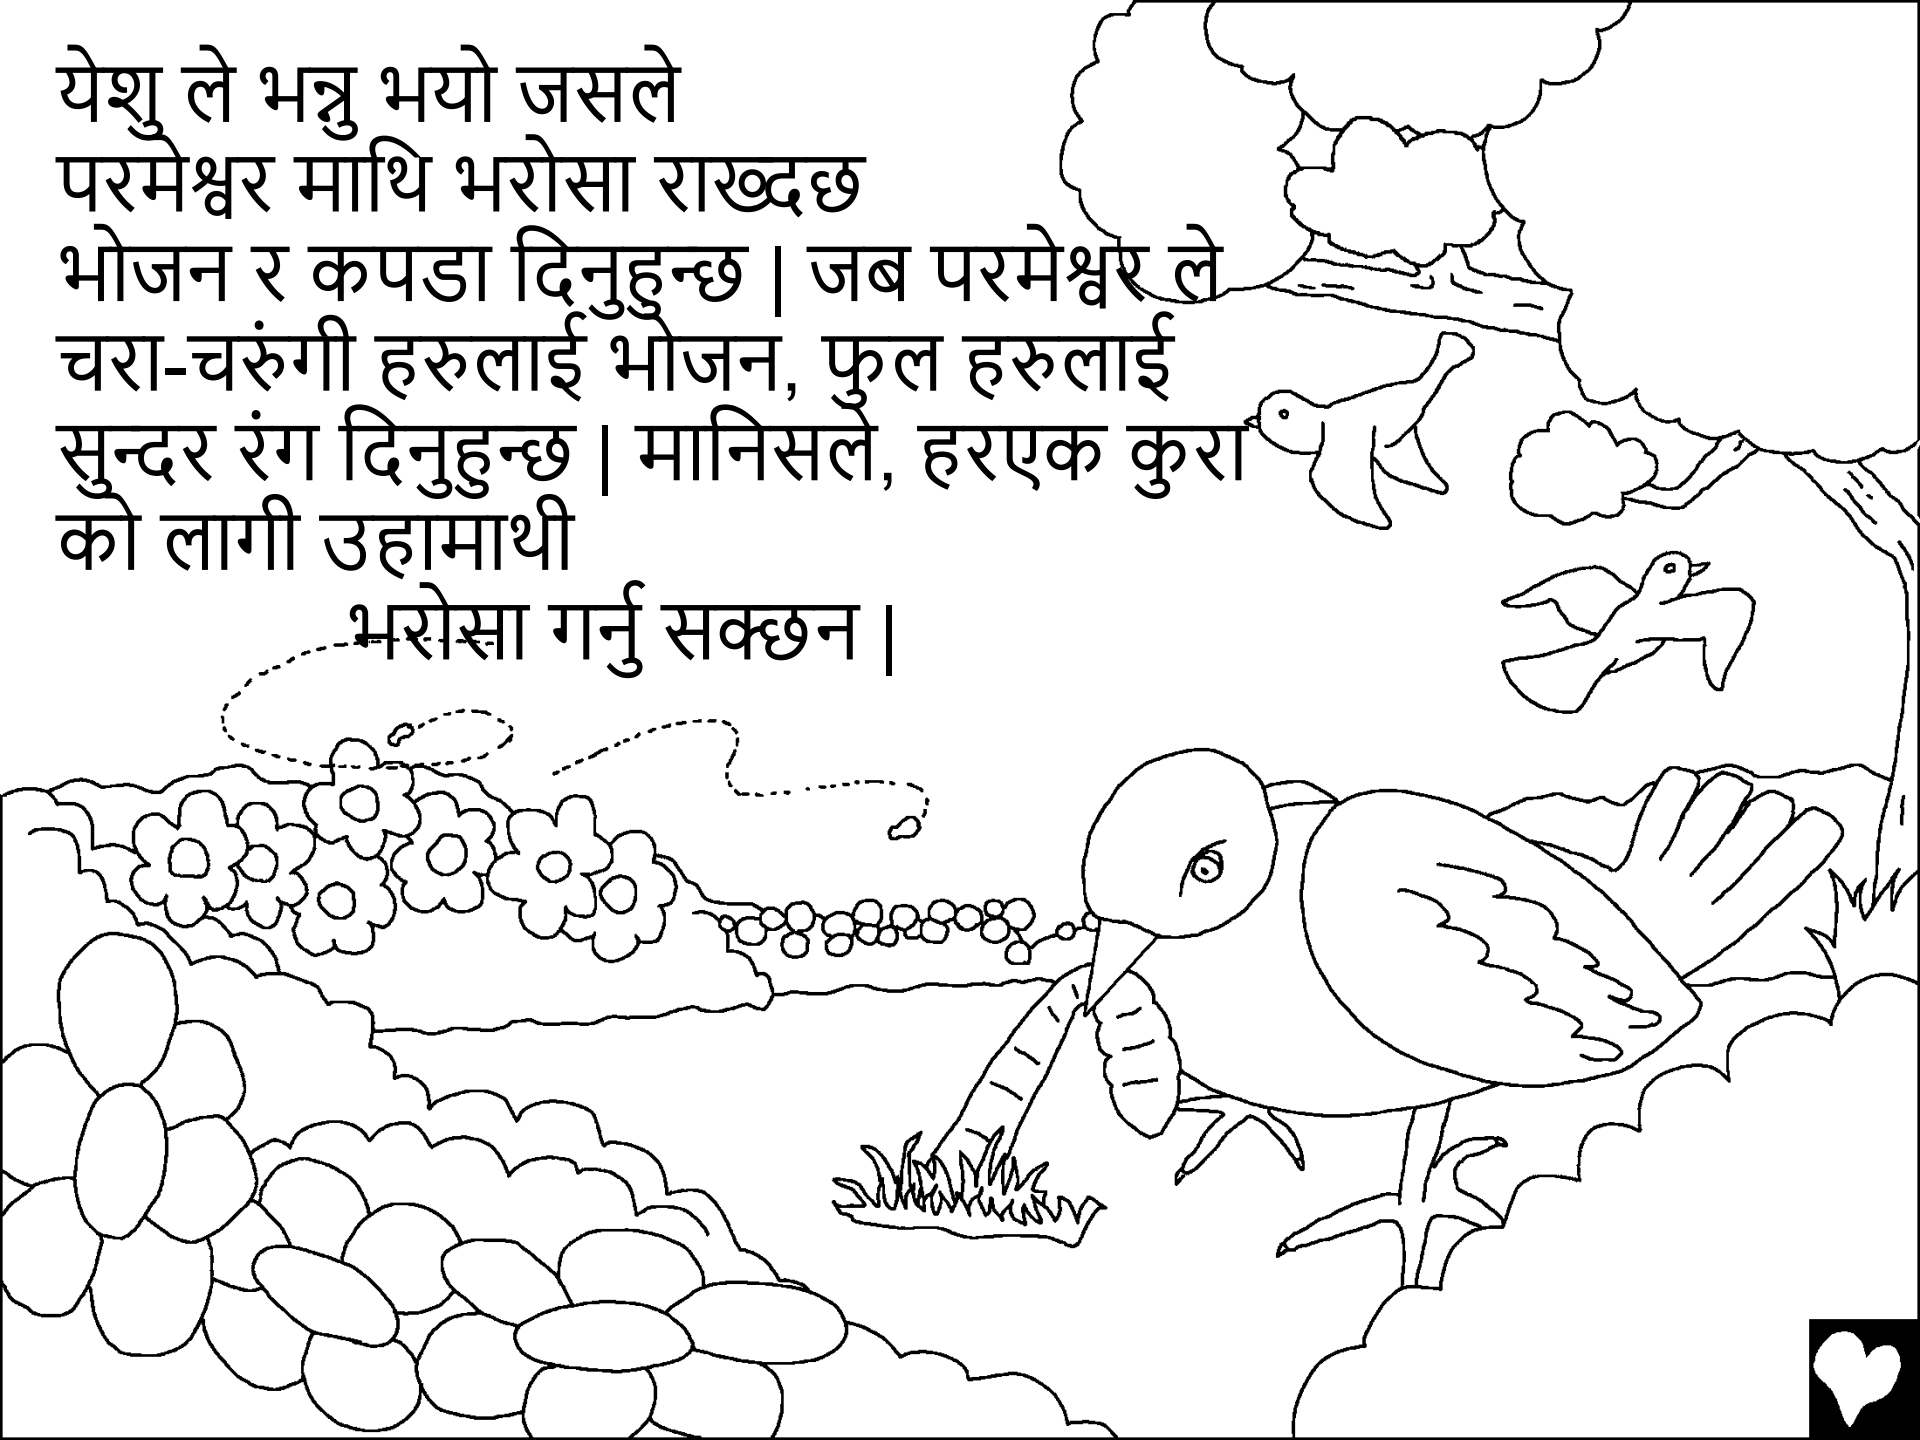 येशु ले भन्नु भयो जसले
परमेश्वर माथि भरोसा राख्दछ
भोजन र कपडा दिनुहुन्छ | जब परमेश्वर ले
चरा-चरुंगी हरुलाई भोजन, फुल हरुलाई
सुन्दर रंग दिनुहुन्छ | मानिसले, हरएक कुरा
को लागी उहामाथी
भरोसा गर्नु सक्छन |